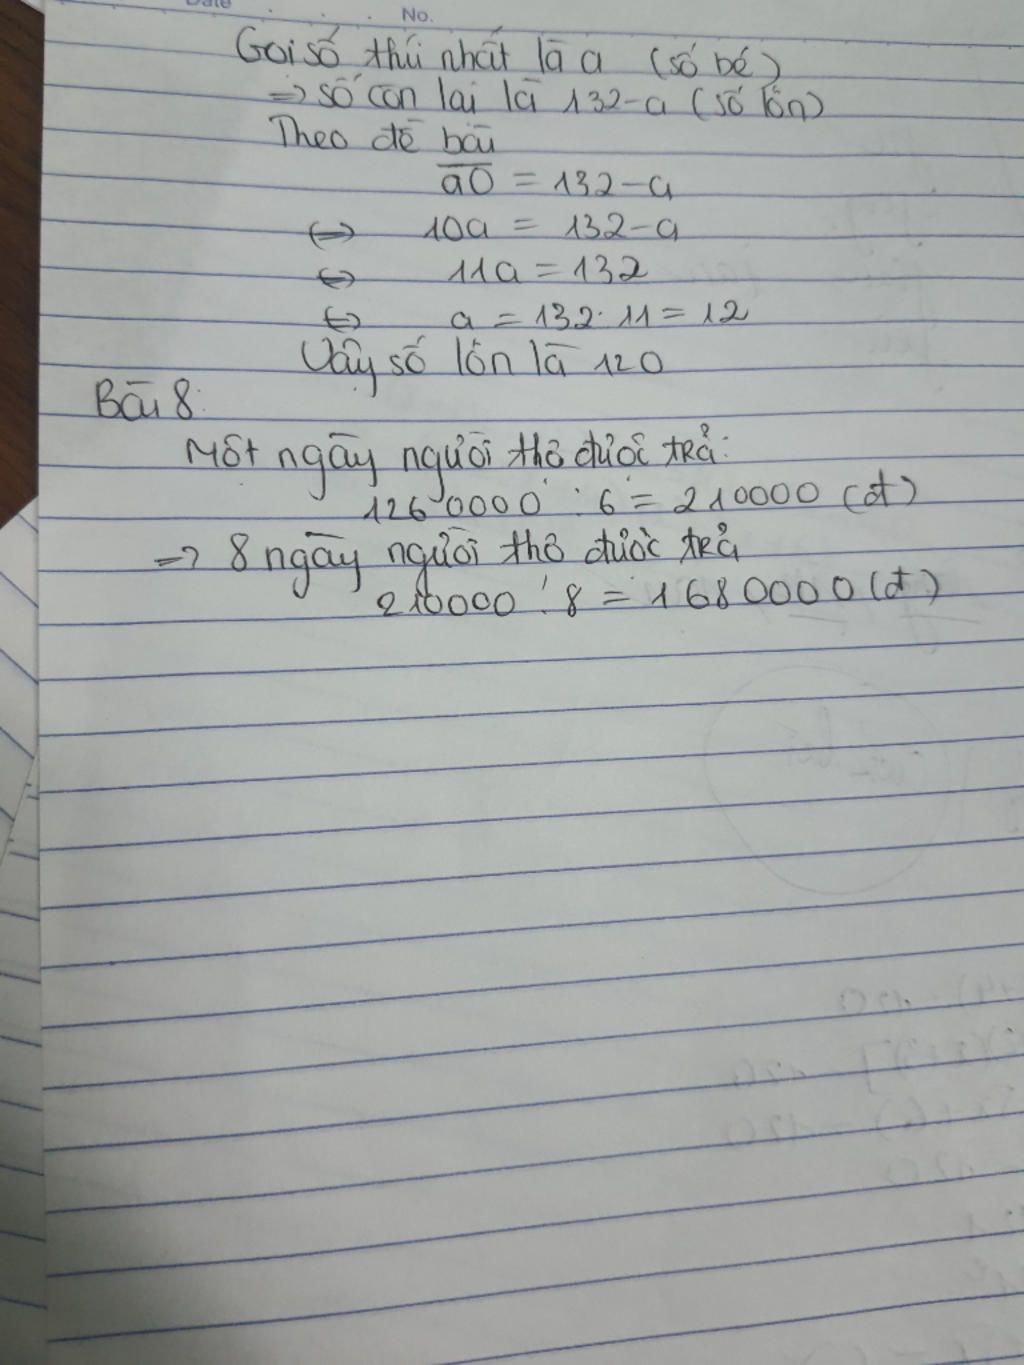 Date No.
Gọi số thứ nhất là a (số bé)
=> số còn lại là 132-a (số lớn)
Theo đề bài
a0 = 132-a
<=> 10a = 132-a
<=> 11a = 132
<=> a = 132:11 = 12
Vậy số lớn là 120
Bài 8:
Một ngày người thợ được trả:
1260000 : 6 = 210000 (đ)
=> 8 ngày người thợ được trả
210000 : 8 = 1680000 (đ)